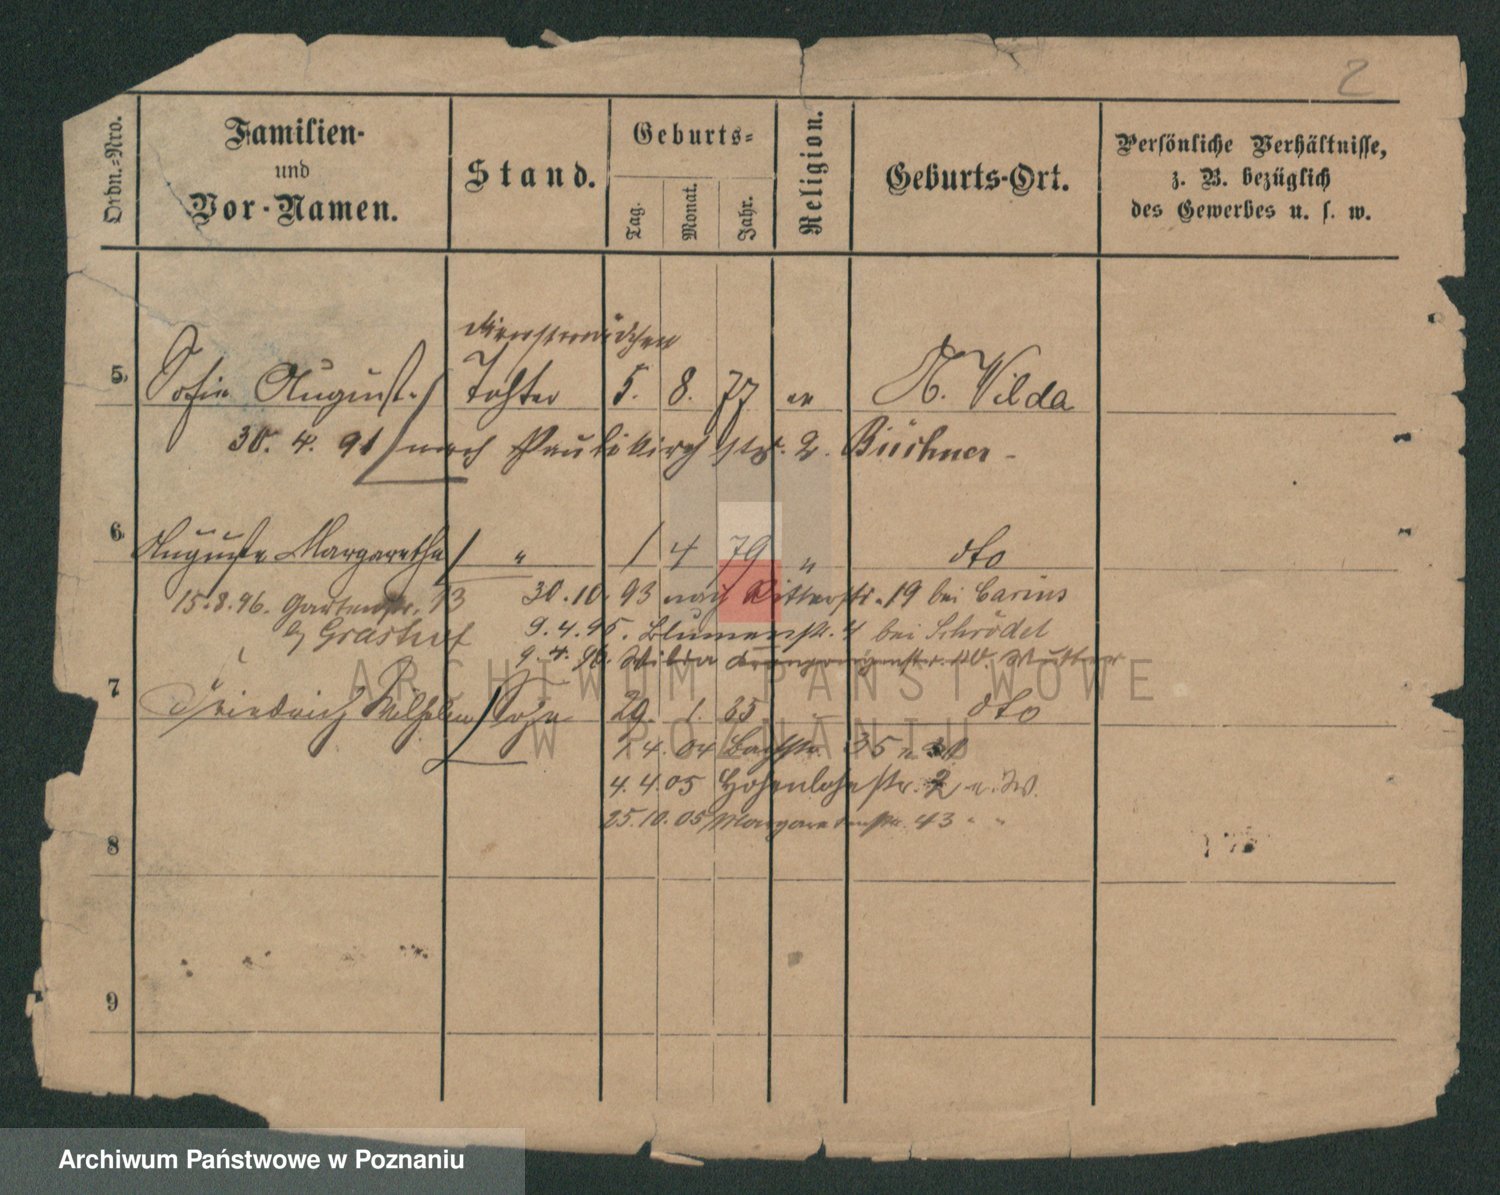 2
Ordn.-Nro.
Familien-
und
Vor-Namen.
Stand.
Geburts-
Tag.
Monat.
Jahr.
Religion.
Geburts-Ort.
Persönliche Verhältnisse,
z. B. bezüglich
des Gewerbes u. s. w.
Dienstmädchen
5. Sofie August. Tochter 5. 8. 77 ev Wilda
30. 4. 91 nach Paulikirchstr. 2. Büchner -
6. Auguste Margarethe / " 1 4 79 " dto
15.8.96. Gartenstr. 13 30.10.93 nach Ritterstr. 19 bei Carius
Grashof 9.4.95. Blumenstr. 4 bei Schrödel
9.4.96. Wilda
7 Friedrich Wilhelm Sohn 29. 1. 85 dto
1.4.04 Bachstr. 35
4.4.05 Hohenlohestr. 2
25.10.05 Margaretenstr. 43 " "
8
9
ARCHIWUM PAŃSTWOWE
W POZNANIU
Archiwum Państwowe w Poznaniu